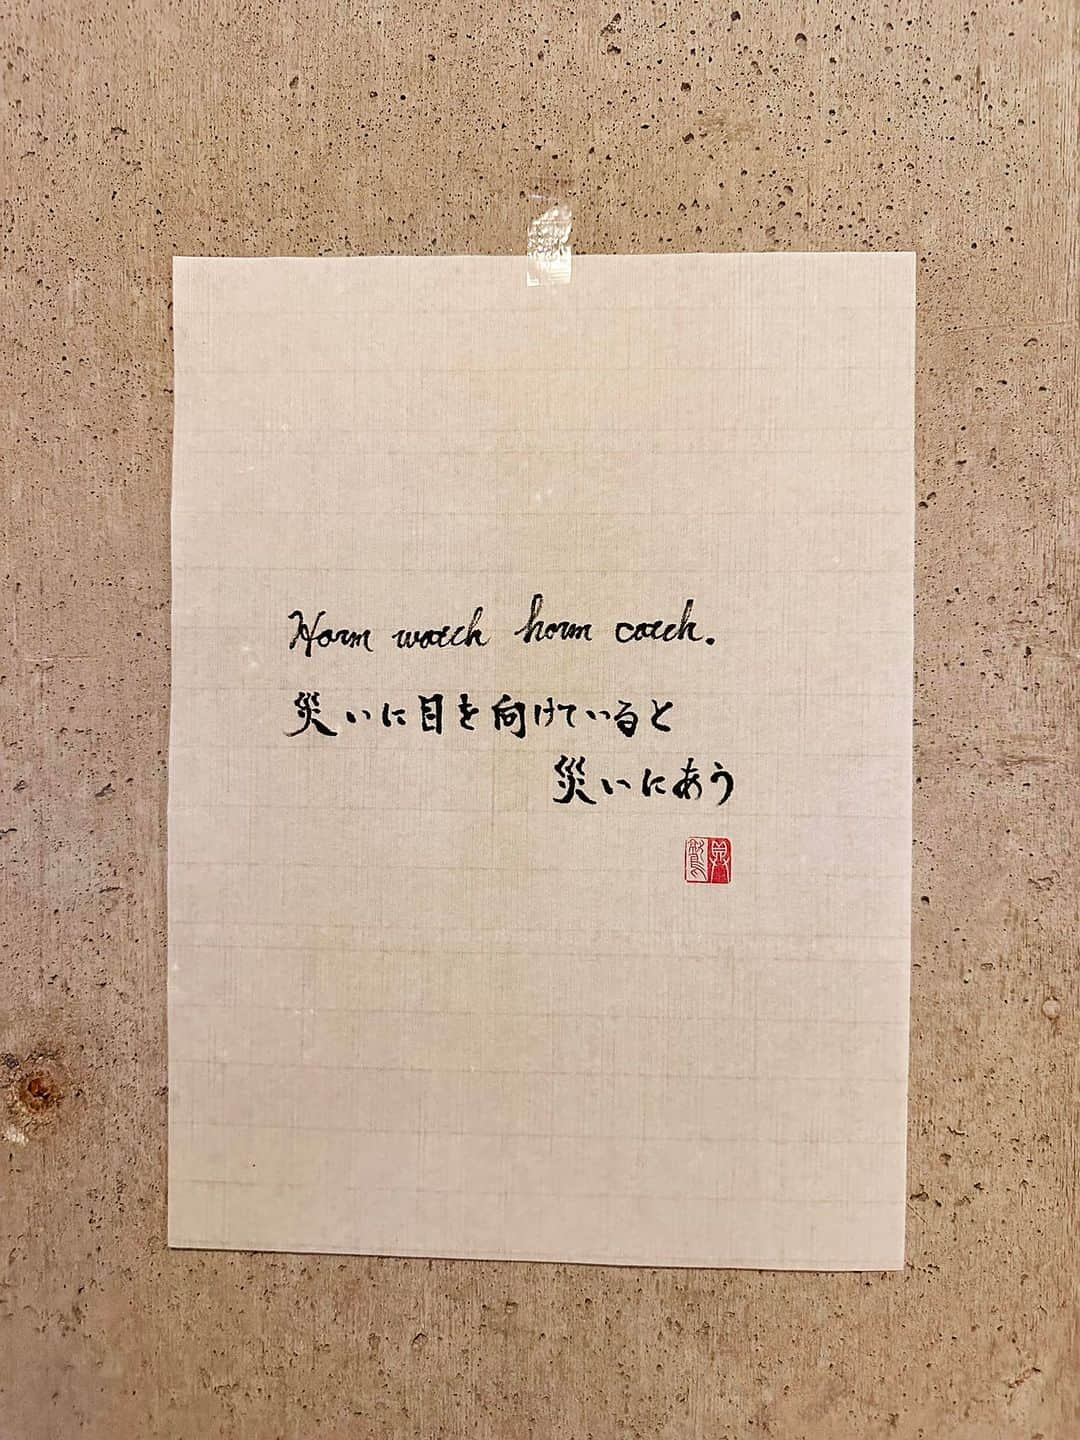 Harm watch harm catch.
災いに目を向けていると
災いにあう